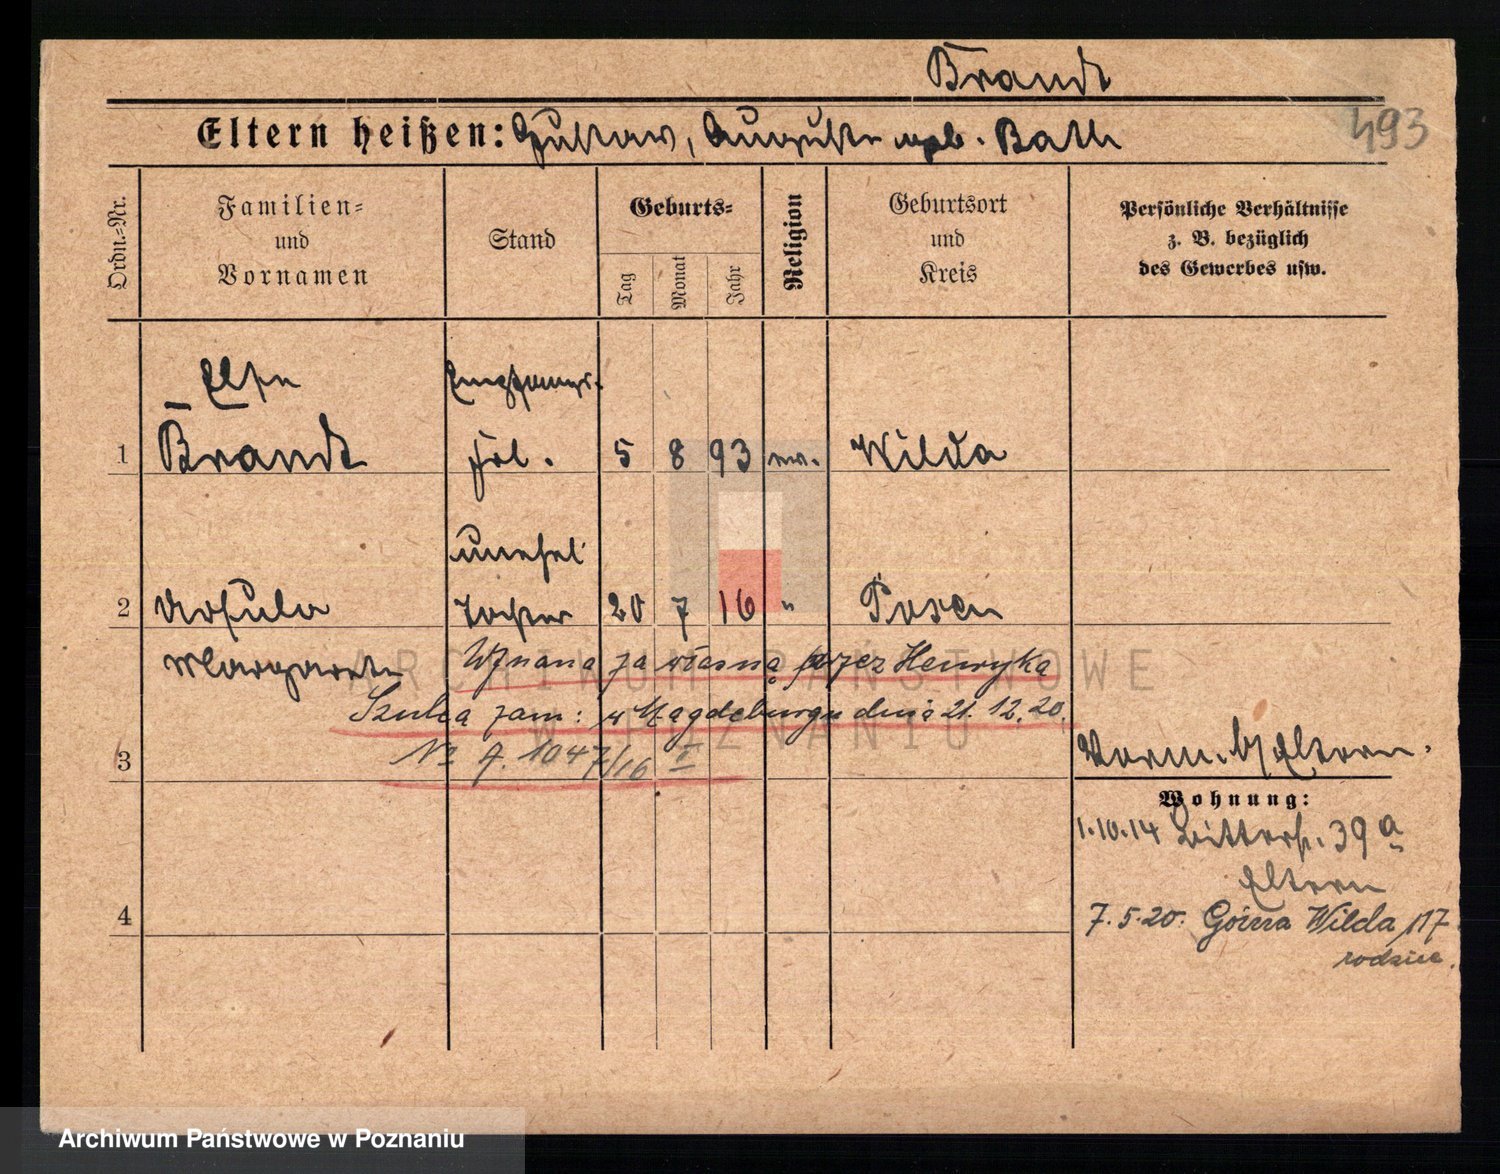 Brandt
Eltern heißen: Gustav, Auguste geb. Bath
493
Ordn.-Nr.
Familien-
und
Vornamen
Stand
Geburts-
Tag
Monat
Jahr
Religion
Geburtsort
und
Kreis
Persönliche Verhältnisse
z. B. bezüglich
des Gewerbes usw.
Else
Empfangs-
1 Brandt frl. 5 8 93 ev. Wilda
unehel
2 Ursula Tochter 20 7 16 " Posen
Margarete Uznana za własną przez Henryka
Szulca zam: w Magdeburgu dnia 21.12.20.
3 No 1047/16 I
Vorm. b/Eltern.
Wohnung:
1.10.14 Bitterstr. 39a
Eltern
4
7.5.20. Górna Wilda 117
rodzice.
ARCHIWUM PAŃSTWOWE
W POZNANIU
Archiwum Państwowe w Poznaniu